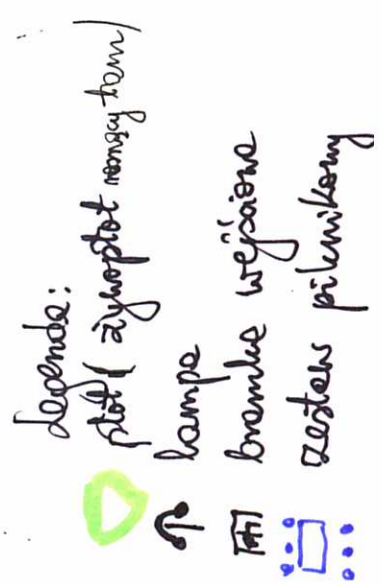 legenda:
płot (żywopłot
lampa
bramka wejściowa
zestaw piknikowy